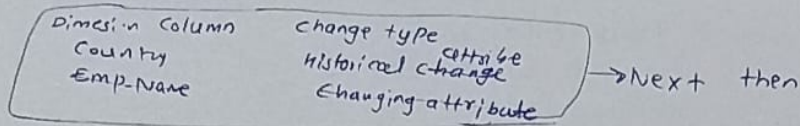 Dimesin Column Change type
Country Historical attribe change
Emp-Name Changing attribute
→ Next then